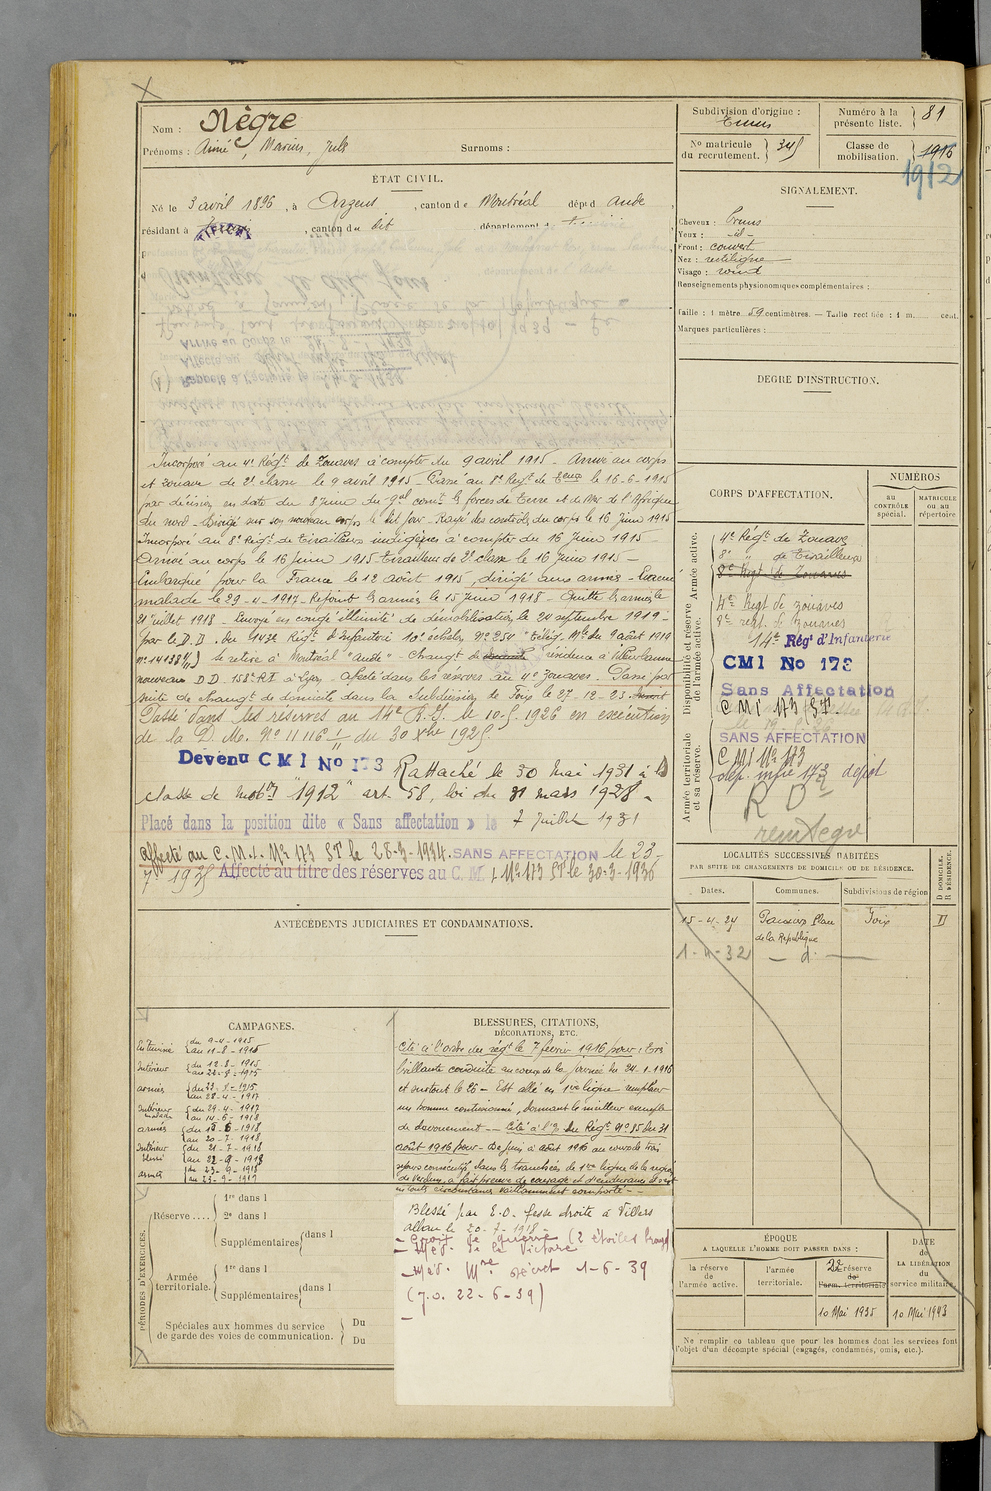 Nom : Nègre
Prénoms : Aimé, Marius, Jules Surnoms :
ÉTAT CIVIL.
Né le 3 avril 1896, à Argens, canton de Montréal dépt d Aude
résidant à , canton du dit département d
Incorporé au 4e Régt de Zouaves à compter du 9 avril 1915 - Arrivé au corps
et zouave de 2e classe le 9 avril 1915 - Passé au 8e Regt de le 16-6-1915
par décision en date du 8 Juin du gal comt les forces de Terre et de Mer de l'Afrique
du nord - Dirigé sur son nouveau corps le dit jour - Rayé des contrôles du corps le 16 Juin 1915
Incorporé au 8e Régt de Tirailleurs indigènes à compter du 16 Juin 1915 -
Arrivé au corps le 16 Juin 1915 - Tirailleur de 2e classe le 16 Juin 1915 -
Embarqué pour la France le 12 août 1915, dirigé aux armées - Evacué
malade le 29-4-1917 - Rejoint les armées le 15 Juin 1918 - Quitte les armées le
21 Juillet 1918 - Envoyé en congé illimité de démobilisation le 24 septembre 1919 -
par le D.D. du 143e Régt d'Infanterie 10e échelon, No 254 "Télég. Mel du 9 août 1919
No 14138 se retire à Montréal "Aude" - Changt de résidence à Villeurbanne
nouveau D.D. 158e RI à Lyon - affecté dans les réserves au 4e Zouaves. Passé par
suite de changt de domicile dans la Subdivision de Foix le 27-12-23
Passé dans les réserves au 14e R.I. le 10-5-1926 en exécution
de la D.M. No 11116 1/11 du 30 Xbre 1925
Devenu CMI No 173 Rattaché le 30 Mai 1931 à la
classe de mobon "1912" art 58, loi du 31 mars 1928 -
Placé dans la position dite « Sans affectation » le 7 Juillet 1931
Affecté au C.M.I. No 173 ST le 28-3-1934. SANS AFFECTATION le 23-
7 1935 Affecté au titre des réserves au C.M.I No 173 ST le 30-3-1936
ANTÉCÉDENTS JUDICIAIRES ET CONDAMNATIONS.
CAMPAGNES.
du 9-4-1915
au 11-8-1915
Intérieur du 12-8-1915
armées
au 28-4-1917
Intérieur malade du 29-4-1917
au 14-6-1918
armées du 15-6-1918
au 20-7-1918
Intérieur blessé du 21-7-1918
au 22-9-1918
armées du 23-9-1918
au 23-9-1919
BLESSURES, CITATIONS,
DÉCORATIONS, ETC.
Cité à l'ordre du régt le 7 février 1916 pour : très
brillante conduite au cours de la journée du 24-1-1916
et surtout le 25 - Est allé en 1ère ligne remplacer
un homme contusionné, donnant le meilleur exemple
de dévouement -- Cité à l'O. du Régt No 85 du 31
août 1916 pour - De Juin à août 1916 au cours de trois
séjours consécutifs dans les tranchées de 1ère ligne de la région
de Verdun, a fait preuve de courage et d'endurance et s'est
en toutes circonstances vaillamment comporté -
Blessé par E.O. fesse droite à Villers
le 20-7-1918 -
- Croix de guerre (2 étoiles bronze)
- Méd. de la Victoire
- Méd. Mre décret 1-6-39
(J.O. 22-6-39)
PÉRIODES D'EXERCICES.
Réserve ....
1re dans l
2e dans l
Supplémentaires dans l
Armée territoriale.
1re dans l
Supplémentaires dans l
Spéciales aux hommes du service
de garde des voies de communication.
Du
Du
Subdivision d'origine :
Tunis
Numéro à la présente liste. 81
No matricule du recrutement. 345
Classe de mobilisation. 1916
1912
SIGNALEMENT.
Cheveux : bruns
Yeux : -id-
Front : couvert
Nez : rectiligne
Visage : rond
Renseignements physionomiques complémentaires :
Taille : 1 mètre 59 centimètres. — Taille rectifiée : 1 m. cent.
Marques particulières :
DEGRÉ D'INSTRUCTION.
CORPS D'AFFECTATION.
NUMÉROS
au CONTRÔLE spécial.
MATRICULE ou au répertoire
Armée active.
Disponibilité et réserve de l'armée active.
Armée territoriale et sa réserve.
4e Régt de Zouaves
8e " de Tirailleurs
8e Régt de Zouaves
4e Regt de zouaves
9e regt. de Zouaves
14e Régt d'Infanterie
CMI No 173
Sans Affectation
C M I 173 ST.
SANS AFFECTATION
C M I No 173
dép. infie 173 dépôt
R D
réintégré
LOCALITÉS SUCCESSIVES HABITÉES
PAR SUITE DE CHANGEMENTS DE DOMICILE OU DE RÉSIDENCE.
D DOMICILE. R RÉSIDENCE.
Dates. Communes. Subdivisions de région
15-4-24 Pamiers Place de la République Foix D
1-4-32 - d° -
ÉPOQUE
A LAQUELLE L'HOMME DOIT PASSER DANS :
DATE de LA LIBÉRATION du service militaire.
la réserve de l'armée active.
l'armée territoriale.
2e réserve de l'arm. territoriale
10 Mai 1935
10 Mai 1943
Ne remplir ce tableau que pour les hommes dont les services font
l'objet d'un décompte spécial (engagés, condamnés, omis, etc.).